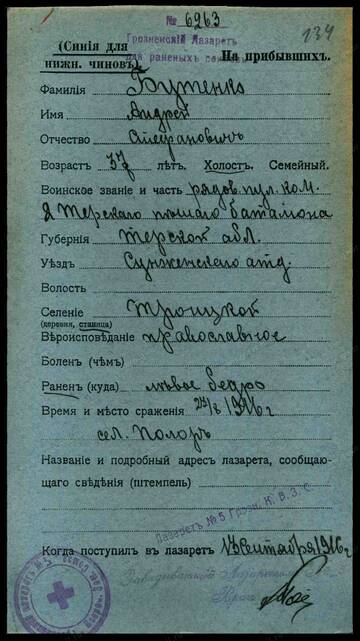 № 6263
134
Грозненскій Лазаретъ
для раненыхъ
(Синія для
нижн. чиновъ)
На прибывшихъ.
Фамилія Бутенко
Имя Андрей
Отчество Стефановичъ
Возрастъ 37 лѣтъ. Холост. Семейный.
Воинское званіе и часть рядов. пул. ком.
Терскаго пѣшаго баталіона
Губернія Терской абл.
Уѣздъ Сунженскаго атд.
Волость
Селеніе Троицкой
(деревня, станица)
Вѣроисповѣданіе православное
Боленъ (чѣмъ)
Раненъ (куда) лѣвое бедро
Время и мѣсто сраженія 1916 г
сел.
Названіе и подробный адресъ лазарета, сообщаю-
щаго свѣдѣнія (штемпель)
Лазаретъ № 5 Грозн. К. В. З. С.
Когда поступилъ въ лазаретъ 13 Сентября 1916 г